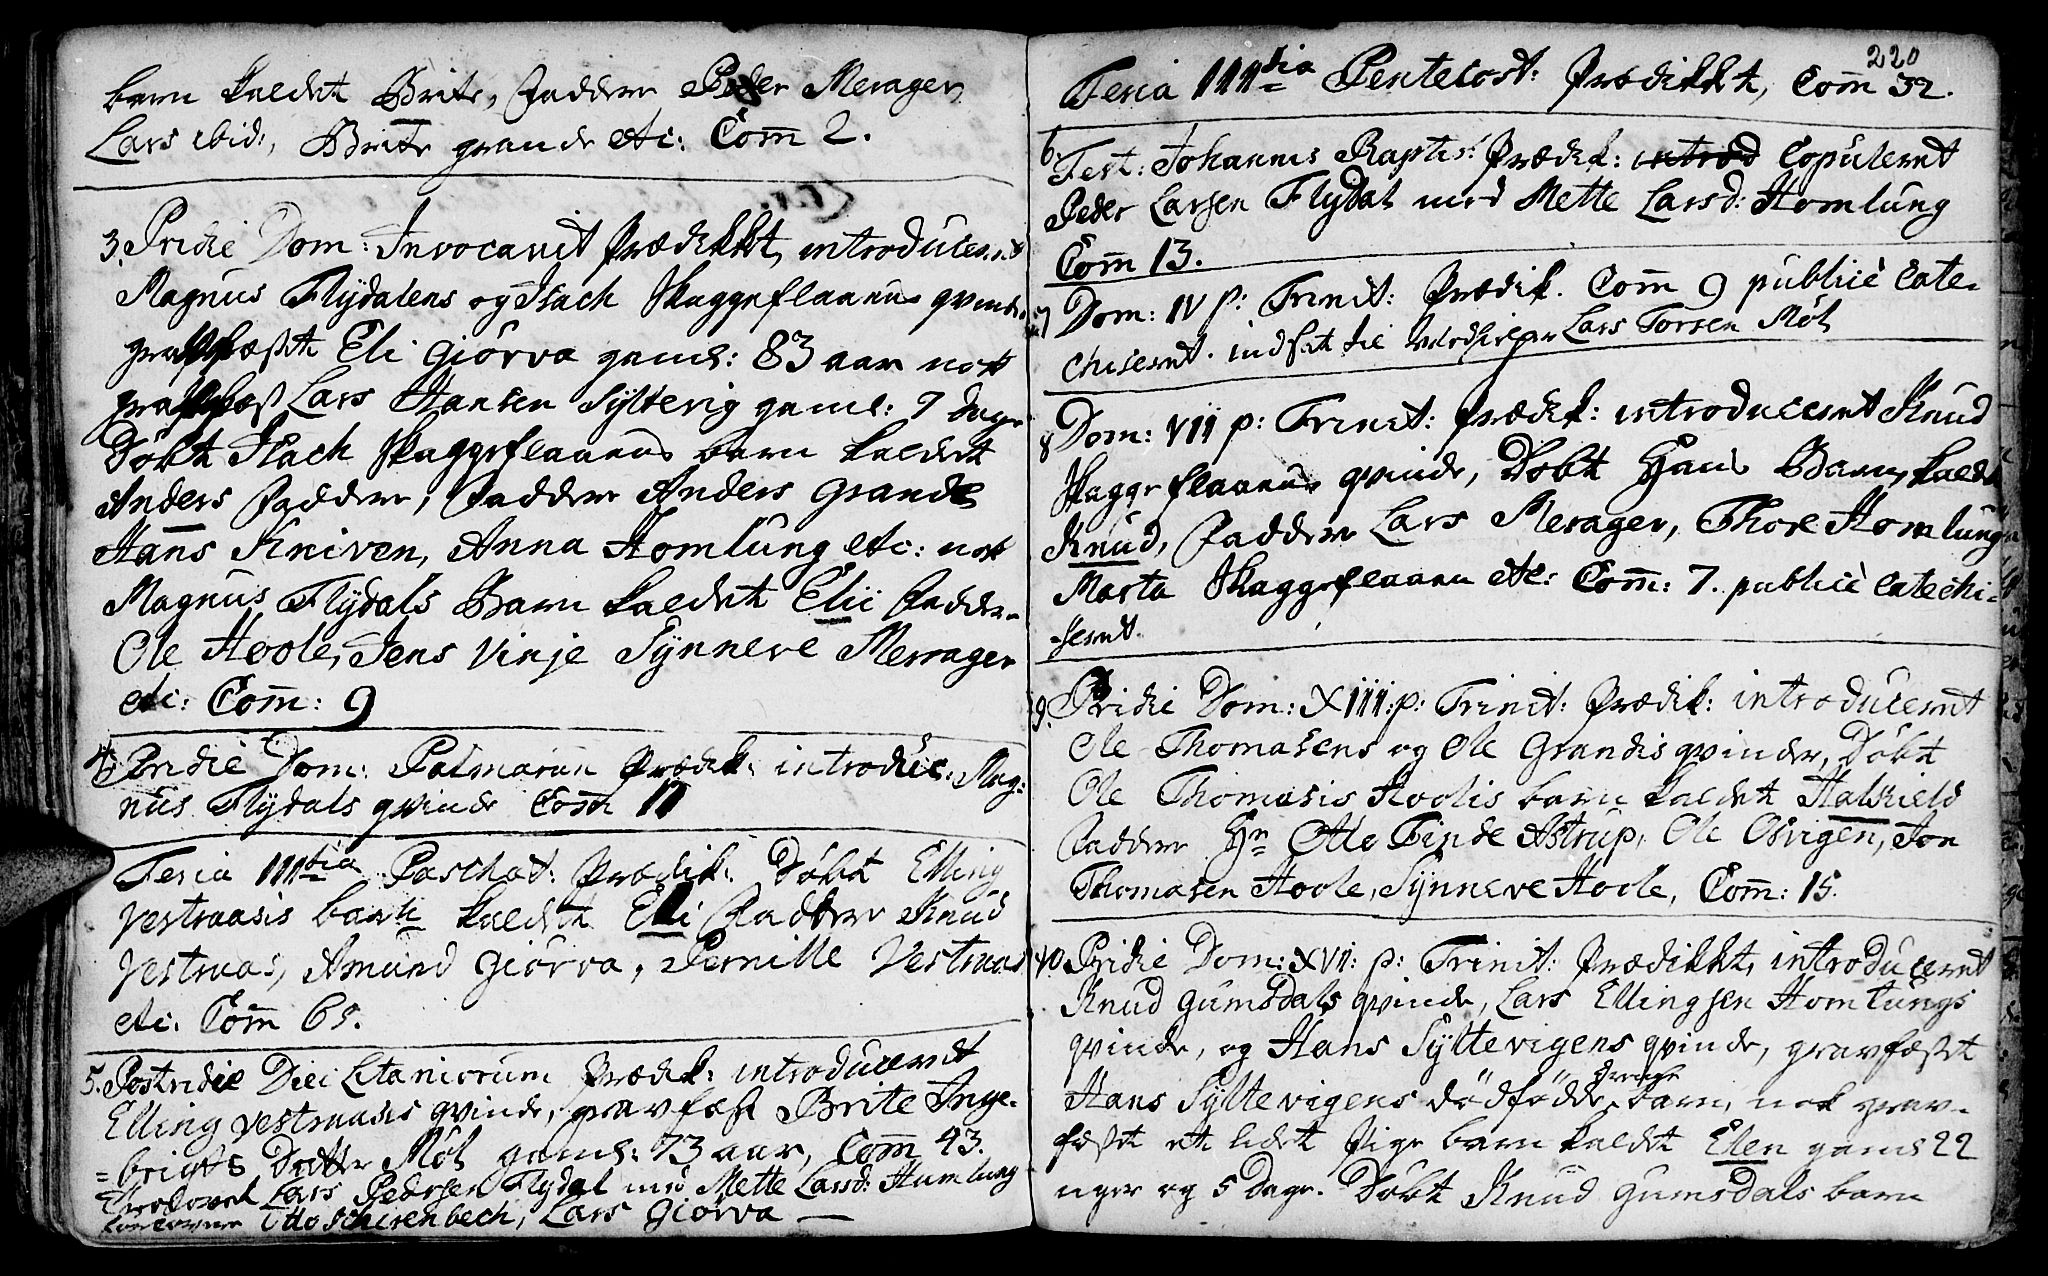 barn kaldet Brite, Faddere Peder Merager
Lars ibid:, Brite grande etc: Com̄ 2.
3. Pridie Dom: Invocavit prædikket, introduceret
Magnus Flydalens og Isach Skaggeflaaens qvinder
gravfæstet Eli Giörva gaml: 83 aar nok
gravfæst Lars Hansen Syltevig gaml: 7 dage
Döbt Isach Skaggeflaaens barn kaldet
Anders Faddere, Faddere Anders Grande
Hans Kniven, Anna Homlung etc: nok
Magnus Flydals Barn kaldet Elii Faddere
Ole Hoole, Jens Vinje Synneve Merager
etc: Com̄: 9
4. Pridie Dom: Palmarum Prædik: introduc: Mag:
nus Flydals qvinde Com̄ 11
Feria IIItia Paschat: Prædik: Döbt Elling
Vestraasis barn kaldet Eli Faddere Knud
Vestraas, Amund Giörva, Pernille Vestraas
etc. Com̄ 65.
5. Postridie Diei Litaniorum Prædik: introduceret
Elling Vestraasis qvinde, gravfæst Brite Inge-
=brigts Datter Möl gaml: 73 aar, Com̄ 43.
Trolovet Lars Pedersen Flydal med Mette Larsd: Humlung
Otto Schesenbech, Lars Giörva —
220
Feria IIItia Pentecost: prædikket, Com̄ 32.
6. Fest: Johannis Baptis: Prædik: introd Copuleret
Peder Larsen Flydal med Mette Larsd: Homlung
Com̄ 13.
7 Dom: IV p: Trinit: Prædik. Com̄ 9 publicè Cate-
chiseret. indsat til Medhielper Lars Torsen Möl
8 Dom: VII p: Trinit: prædik: introduceret Knud
Skaggeflaaens qvinde, Döbt Hans Barn, kaldet
Knud, Faddere Lars Merager, Thore Homlung
Marta Skaggeflaaen etc: Com̄: 7. publicè Catechi-
-seret.
9. Pridie Dom: XIII: p: Trinit: Prædik: introduceret
Ole Thomasens og Ole Grandis qvinder, Döbt
Ole Thomasis Hoolis barn kaldet Halskield
Faddere Hr Otto Finde Astrup, Ole Osvigen, Jon
Thomasen Hoole, Synneve Hoole, Com̄: 15.
10 Pridie Dom: XVI: p: Trinit: Prædikket, introduceret
Knud Gumsdals qvinde, Lars Ellingsen Homlungs
qvinde, og Hans Syltevigens qvinde, gravfæstet
Hans Syltevigens dödfödde drenge barn, nok grav-
fæstet et lidet Pige barn kaldet Elen gaml 22
uger og 5 Dage. Döbt Knud Gumsdals barn